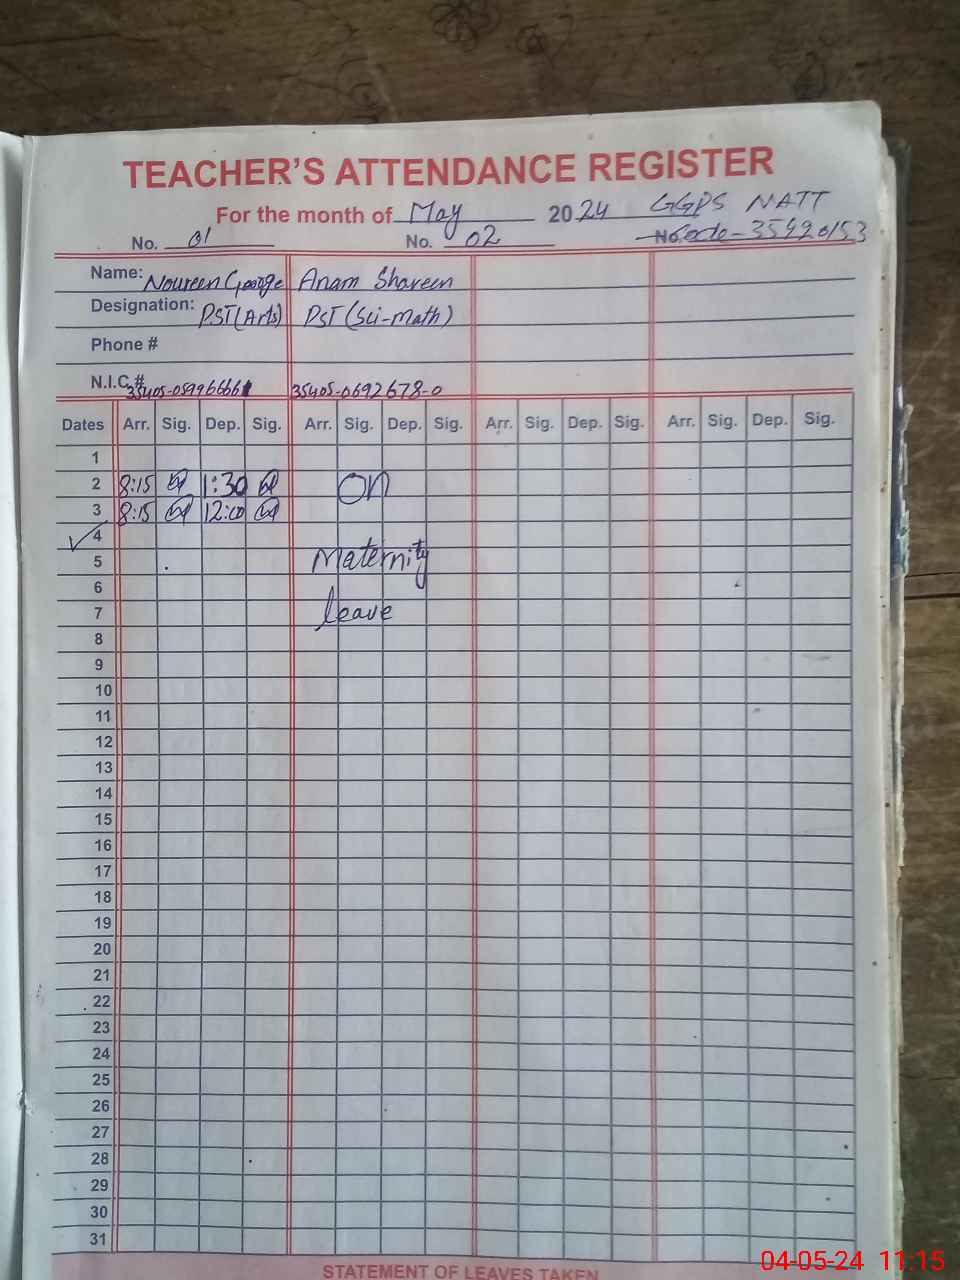 TEACHER'S ATTENDANCE REGISTER
For the month of May 2024 GGPS NATT
No. 01 No. 02 No. Code-35420153
Name: Noureen George Anam Shaveen
Designation: PST(Arts) PST (Sci-Math)
Phone #
N.I.C.# 35405-0692678-0
Dates Arr. Sig. Dep. Sig. Arr. Sig. Dep. Sig. Arr. Sig. Dep. Sig. Arr. Sig. Dep. Sig.
1
2 8:15 1:30 on
3 8:15 12:00
4
5 Maternity
6
7 leave
8
9
10
11
12
13
14
15
16
17
18
19
20
21
22
23
24
25
26
27
28
29
30
31
STATEMENT OF LEAVES TAKEN
04-05-24 11:15